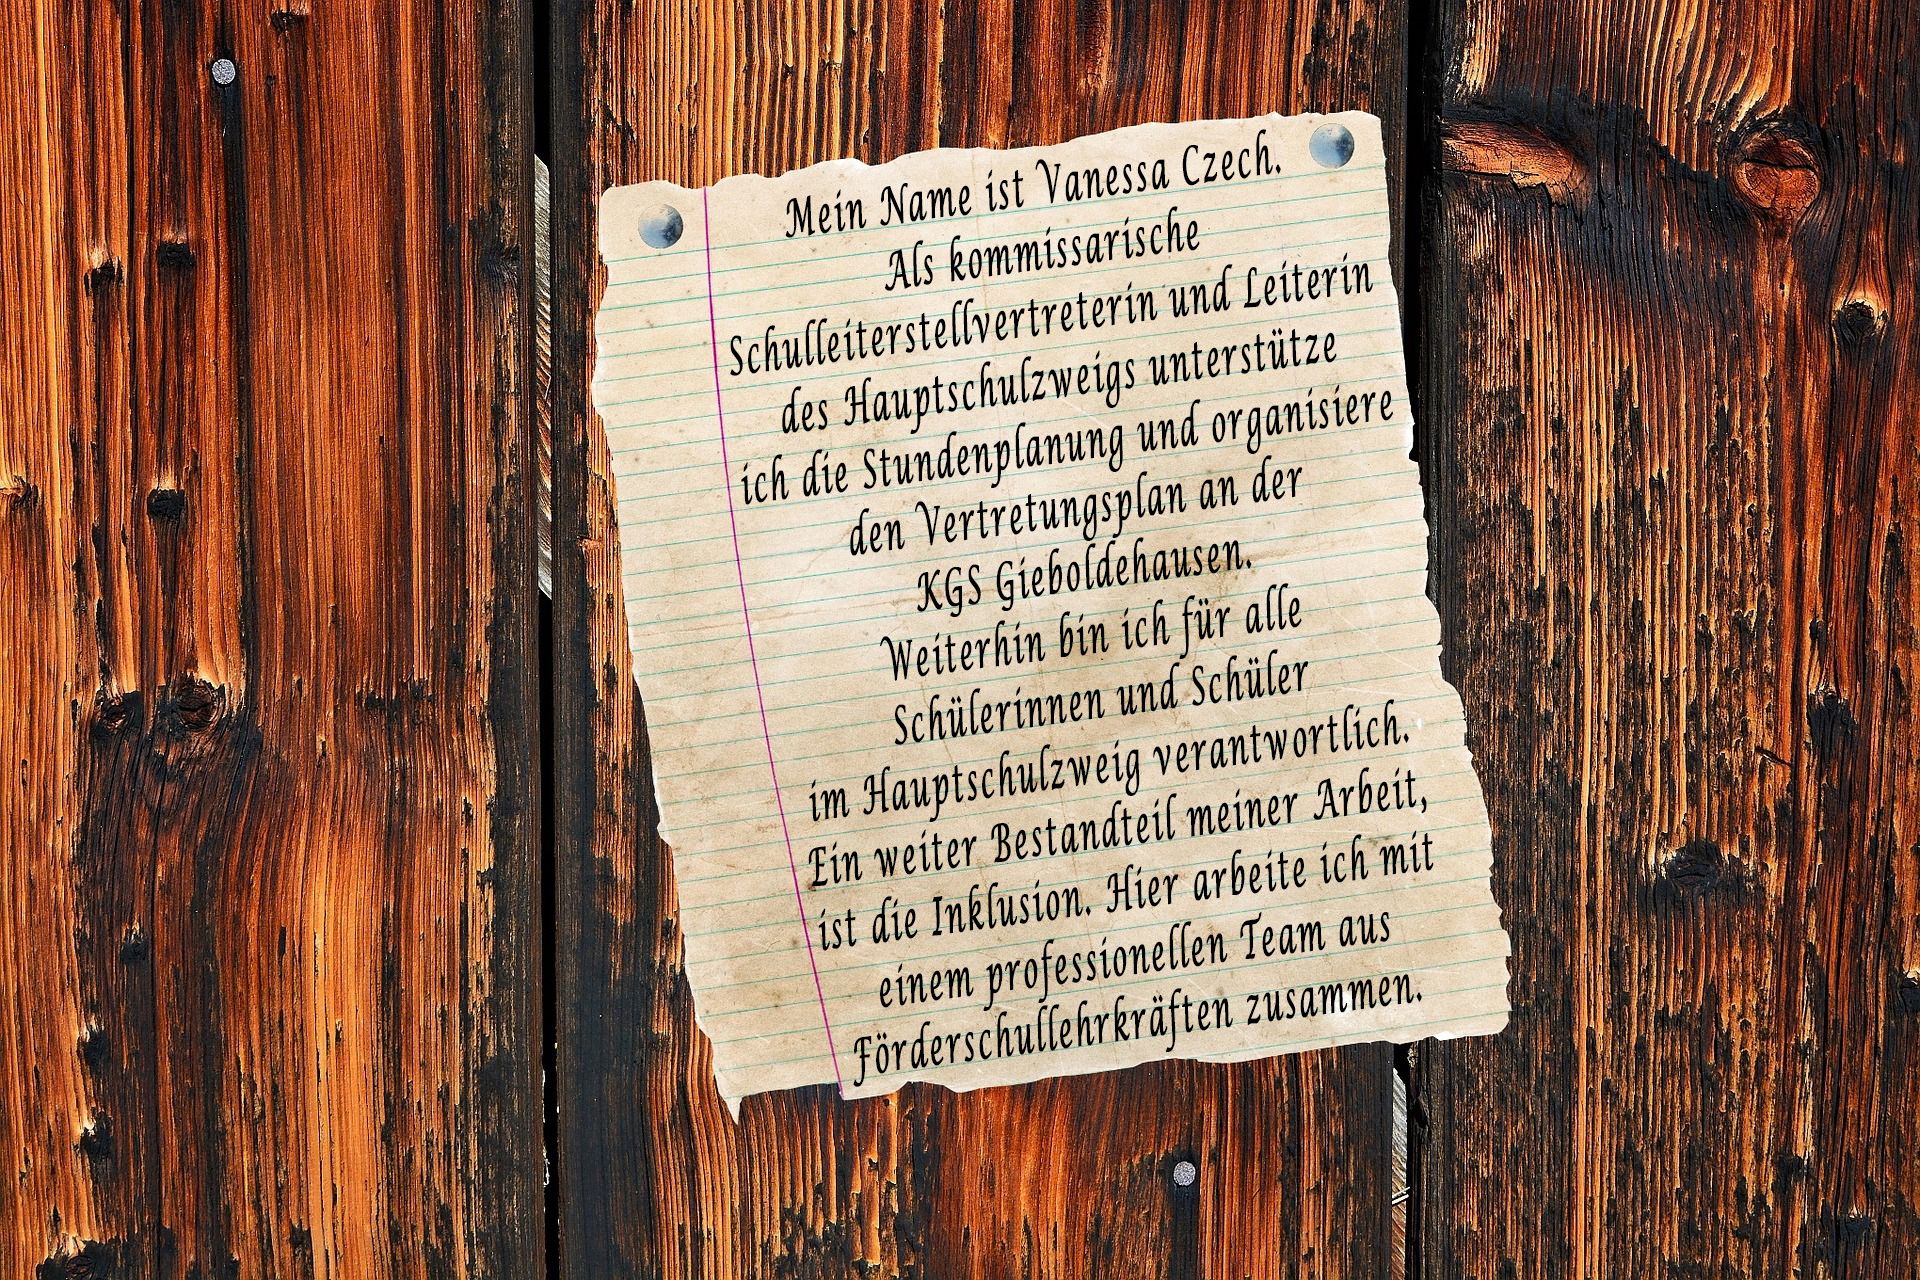 Mein Name ist Vanessa Czech.
Als kommissarische
Schulleiterstellvertreterin und Leiterin
des Hauptschulzweigs unterstütze
ich die Stundenplanung und organisiere
den Vertretungsplan an der
KGS Gieboldehausen.
Weiterhin bin ich für alle
Schülerinnen und Schüler
im Hauptschulzweig verantwortlich.
Ein weiter Bestandteil meiner Arbeit,
ist die Inklusion. Hier arbeite ich mit
einem professionellen Team aus
Förderschullehrkräften zusammen.